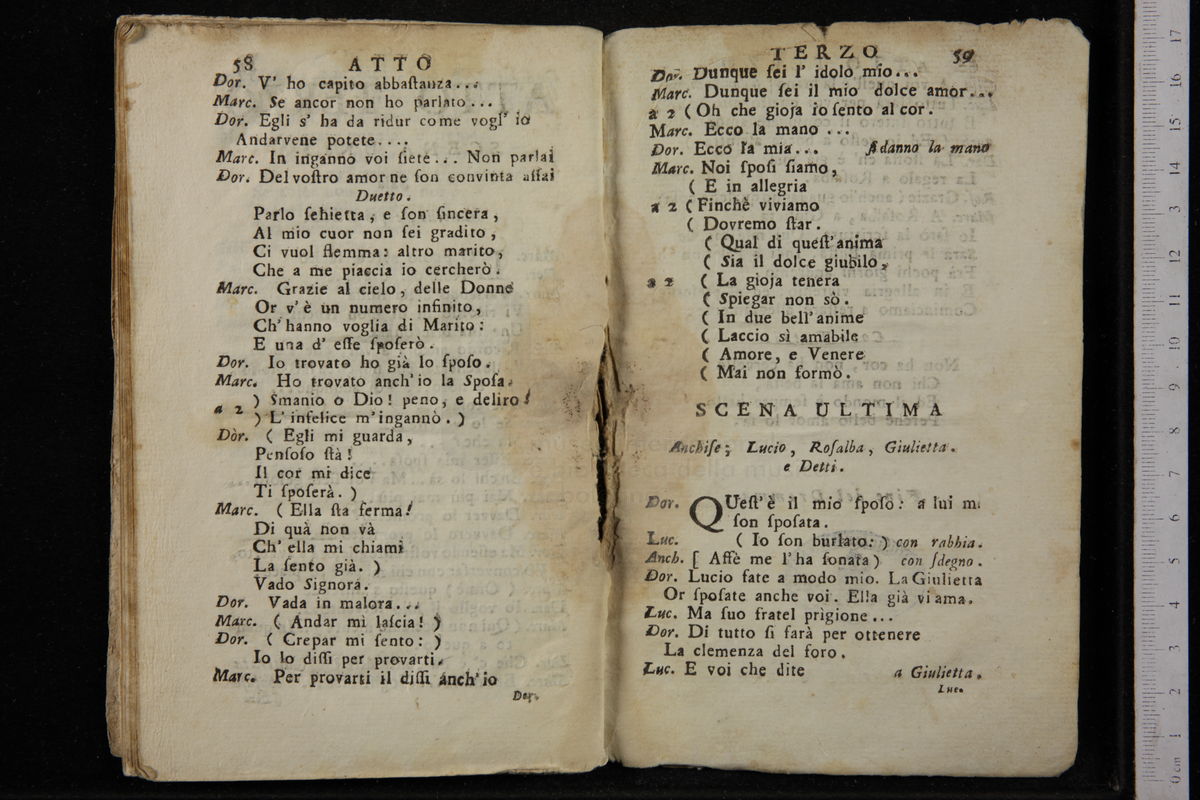 58 ATTO
Dor. V' ho capito abbaſtanza...
Marc. Se ancor non ho parlato...
Dor. Egli s' ha da ridur come vogl' io
Andarvene potete....
Marc. In inganno voi ſiete... Non parlai
Dor. Del voſtro amor ne ſon convinta aſſai
Duetto.
Parlo ſchietta, e ſon ſincera,
Al mio cuor non ſei gradito,
Ci vuol flemma: altro marito,
Che a me piaccia io cercherò.
Marc. Grazie al cielo, delle Donne
Or v' è un numero infinito,
Ch' hanno voglia di Marito:
E una d' eſſe ſpoſerò.
Dor. Io trovato ho già lo ſpoſo.
Marc. Ho trovato anch' io la Spoſa.
a 2 ) Smanio o Dio! peno, e deliro!
) L' infelice m' ingannò. )
Dòr. ( Egli mi guarda,
Penſoſo ſtà!
Il cor mi dice
Ti ſpoſerà. )
Marc. ( Ella ſta ferma!
Di quà non và
Ch' ella mi chiami
La ſento già. )
Vado Signora.
Dor. Vada in malora...
Marc. ( Andar mi laſcia! )
Dor. ( Crepar mi ſento: )
Io lo diſſi per provarti.
Marc. Per provarti il diſſi anch' io
Dor.
TERZO 59
Dor. Dunque ſei l' idolo mio...
Marc. Dunque ſei il mio dolce amor...
a 2 ( Oh che gioja io ſento al cor.
Marc. Ecco la mano ...
Dor. Ecco la mia... ſi danno la mano
Marc. Noi ſpoſi ſiamo,
( E in allegria
a 2 ( Finchè viviamo
( Dovremo ſtar.
( Qual di queſt' anima
( Sia il dolce giubilo,
a 2 ( La gioja tenera
( Spiegar non sò.
( In due bell' anime
( Laccio sì amabile
( Amore, e Venere
( Mai non formò.
SCENA ULTIMA
Anchiſe; Lucio, Roſalba, Giulietta.
e Detti.
Dor. QUeſt' è il mio ſpoſo: a lui mi
ſon ſpoſata.
Luc. ( Io ſon burlato: ) con rabbia.
Anch. [ Affè me l' ha ſonata ) con ſdegno.
Dor. Lucio fate a modo mio. La Giulietta
Or ſpoſate anche voi. Ella già vi ama.
Luc. Ma ſuo fratel prìgione...
Dor. Di tutto ſi farà per ottenere
La clemenza del foro.
Luc. E voi che dite a Giulietta.
Luc.
0 cm 1 2 3 4 5 6 7 8 9 10 11 12 13 14 15 16 17